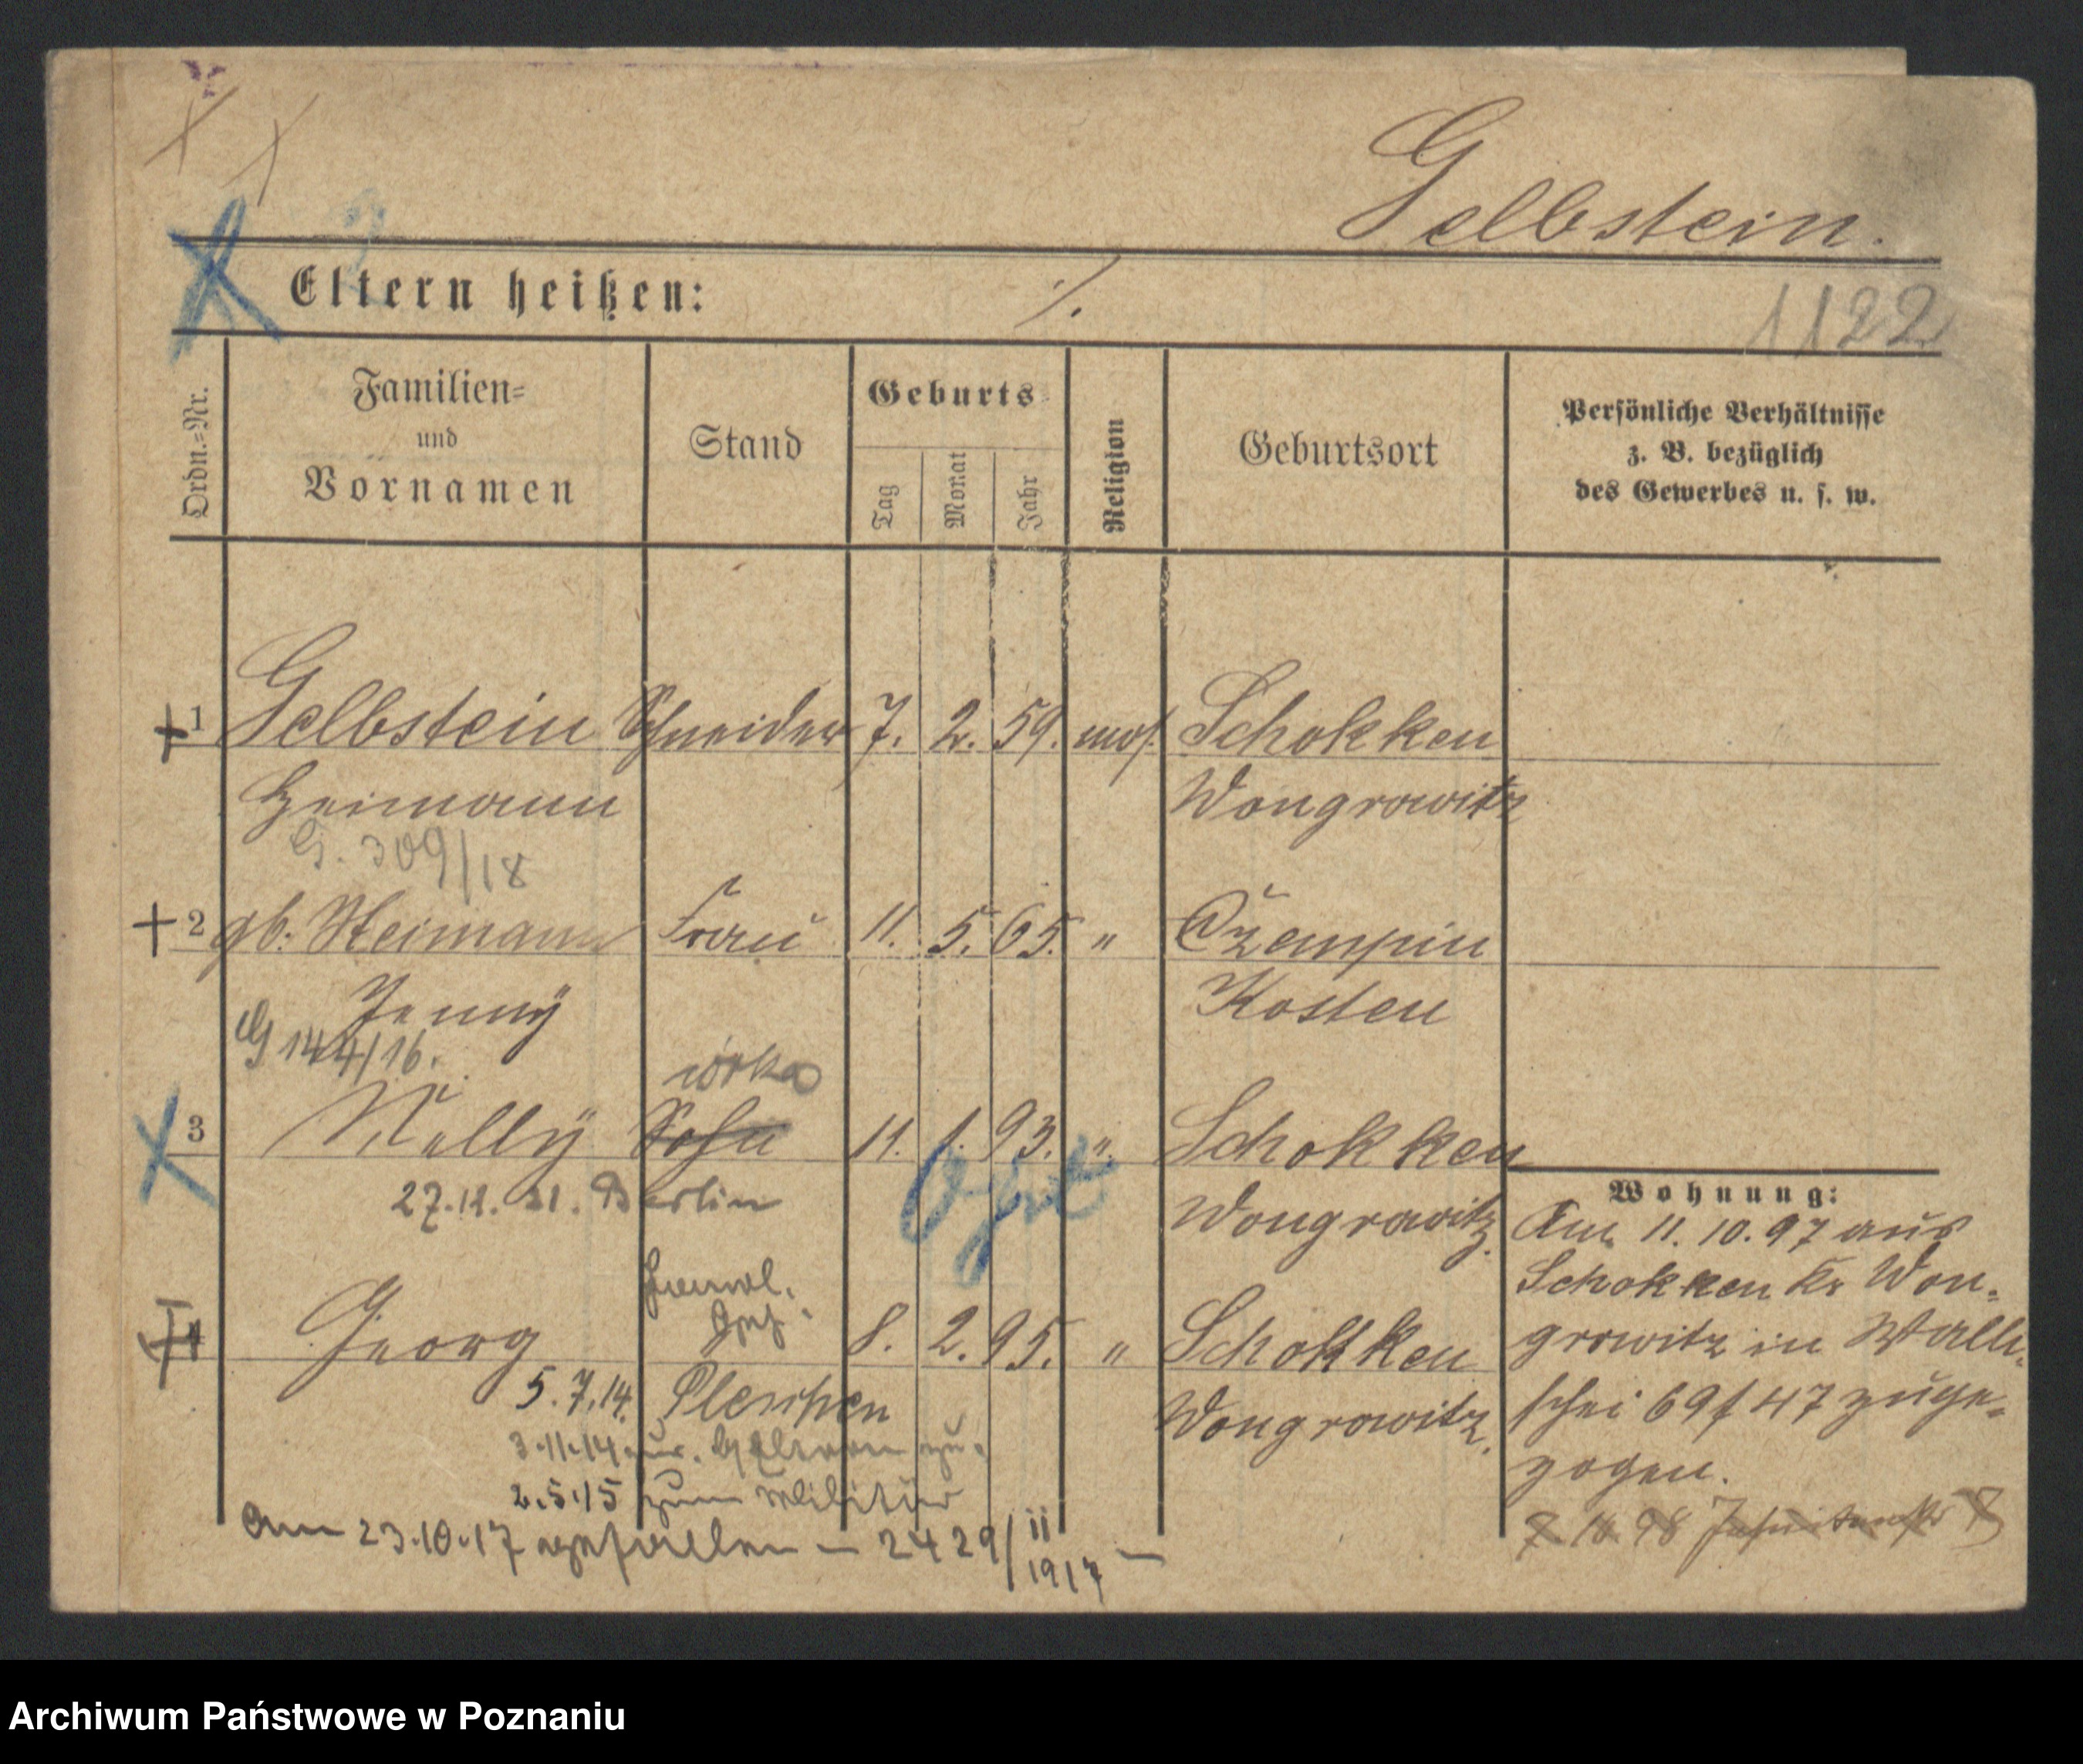 Gelbstein.
Eltern heißen: ./.
1122
Ordn.=Nr.
Familien=
und
Vornamen
Stand
Geburts
Tag
Monat
Jahr
Religion
Geburtsort
Persönliche Verhältnisse
z. B. bezüglich
des Gewerbes u. s. w.
1 Gelbstein Schneider 7. 2. 59. mos. Schokken
Heimann Wongrowitz
G. 309/18
2 gb. Heimann Frau 11. 5. 65. " Czempin
Jenny Kosten
G 144/16.
3 Nelly Sohn 11. 1. 93. " Schokken
27.12. 21. Berlin Wongrowitz.
Wohnung:
Am 11. 10. 97 aus
Schokken Kr Won-
growitz in Walli-
schei 69/47 zuge-
zogen.
Georg 8. 2. 95. " Schokken
5.7.14. Pleschen Wongrowitz.
3.11.14 zu.
2.5.15 zum Militär
am 23.10.17 gefallen – 2429/II 1917 –
Archiwum Państwowe w Poznaniu